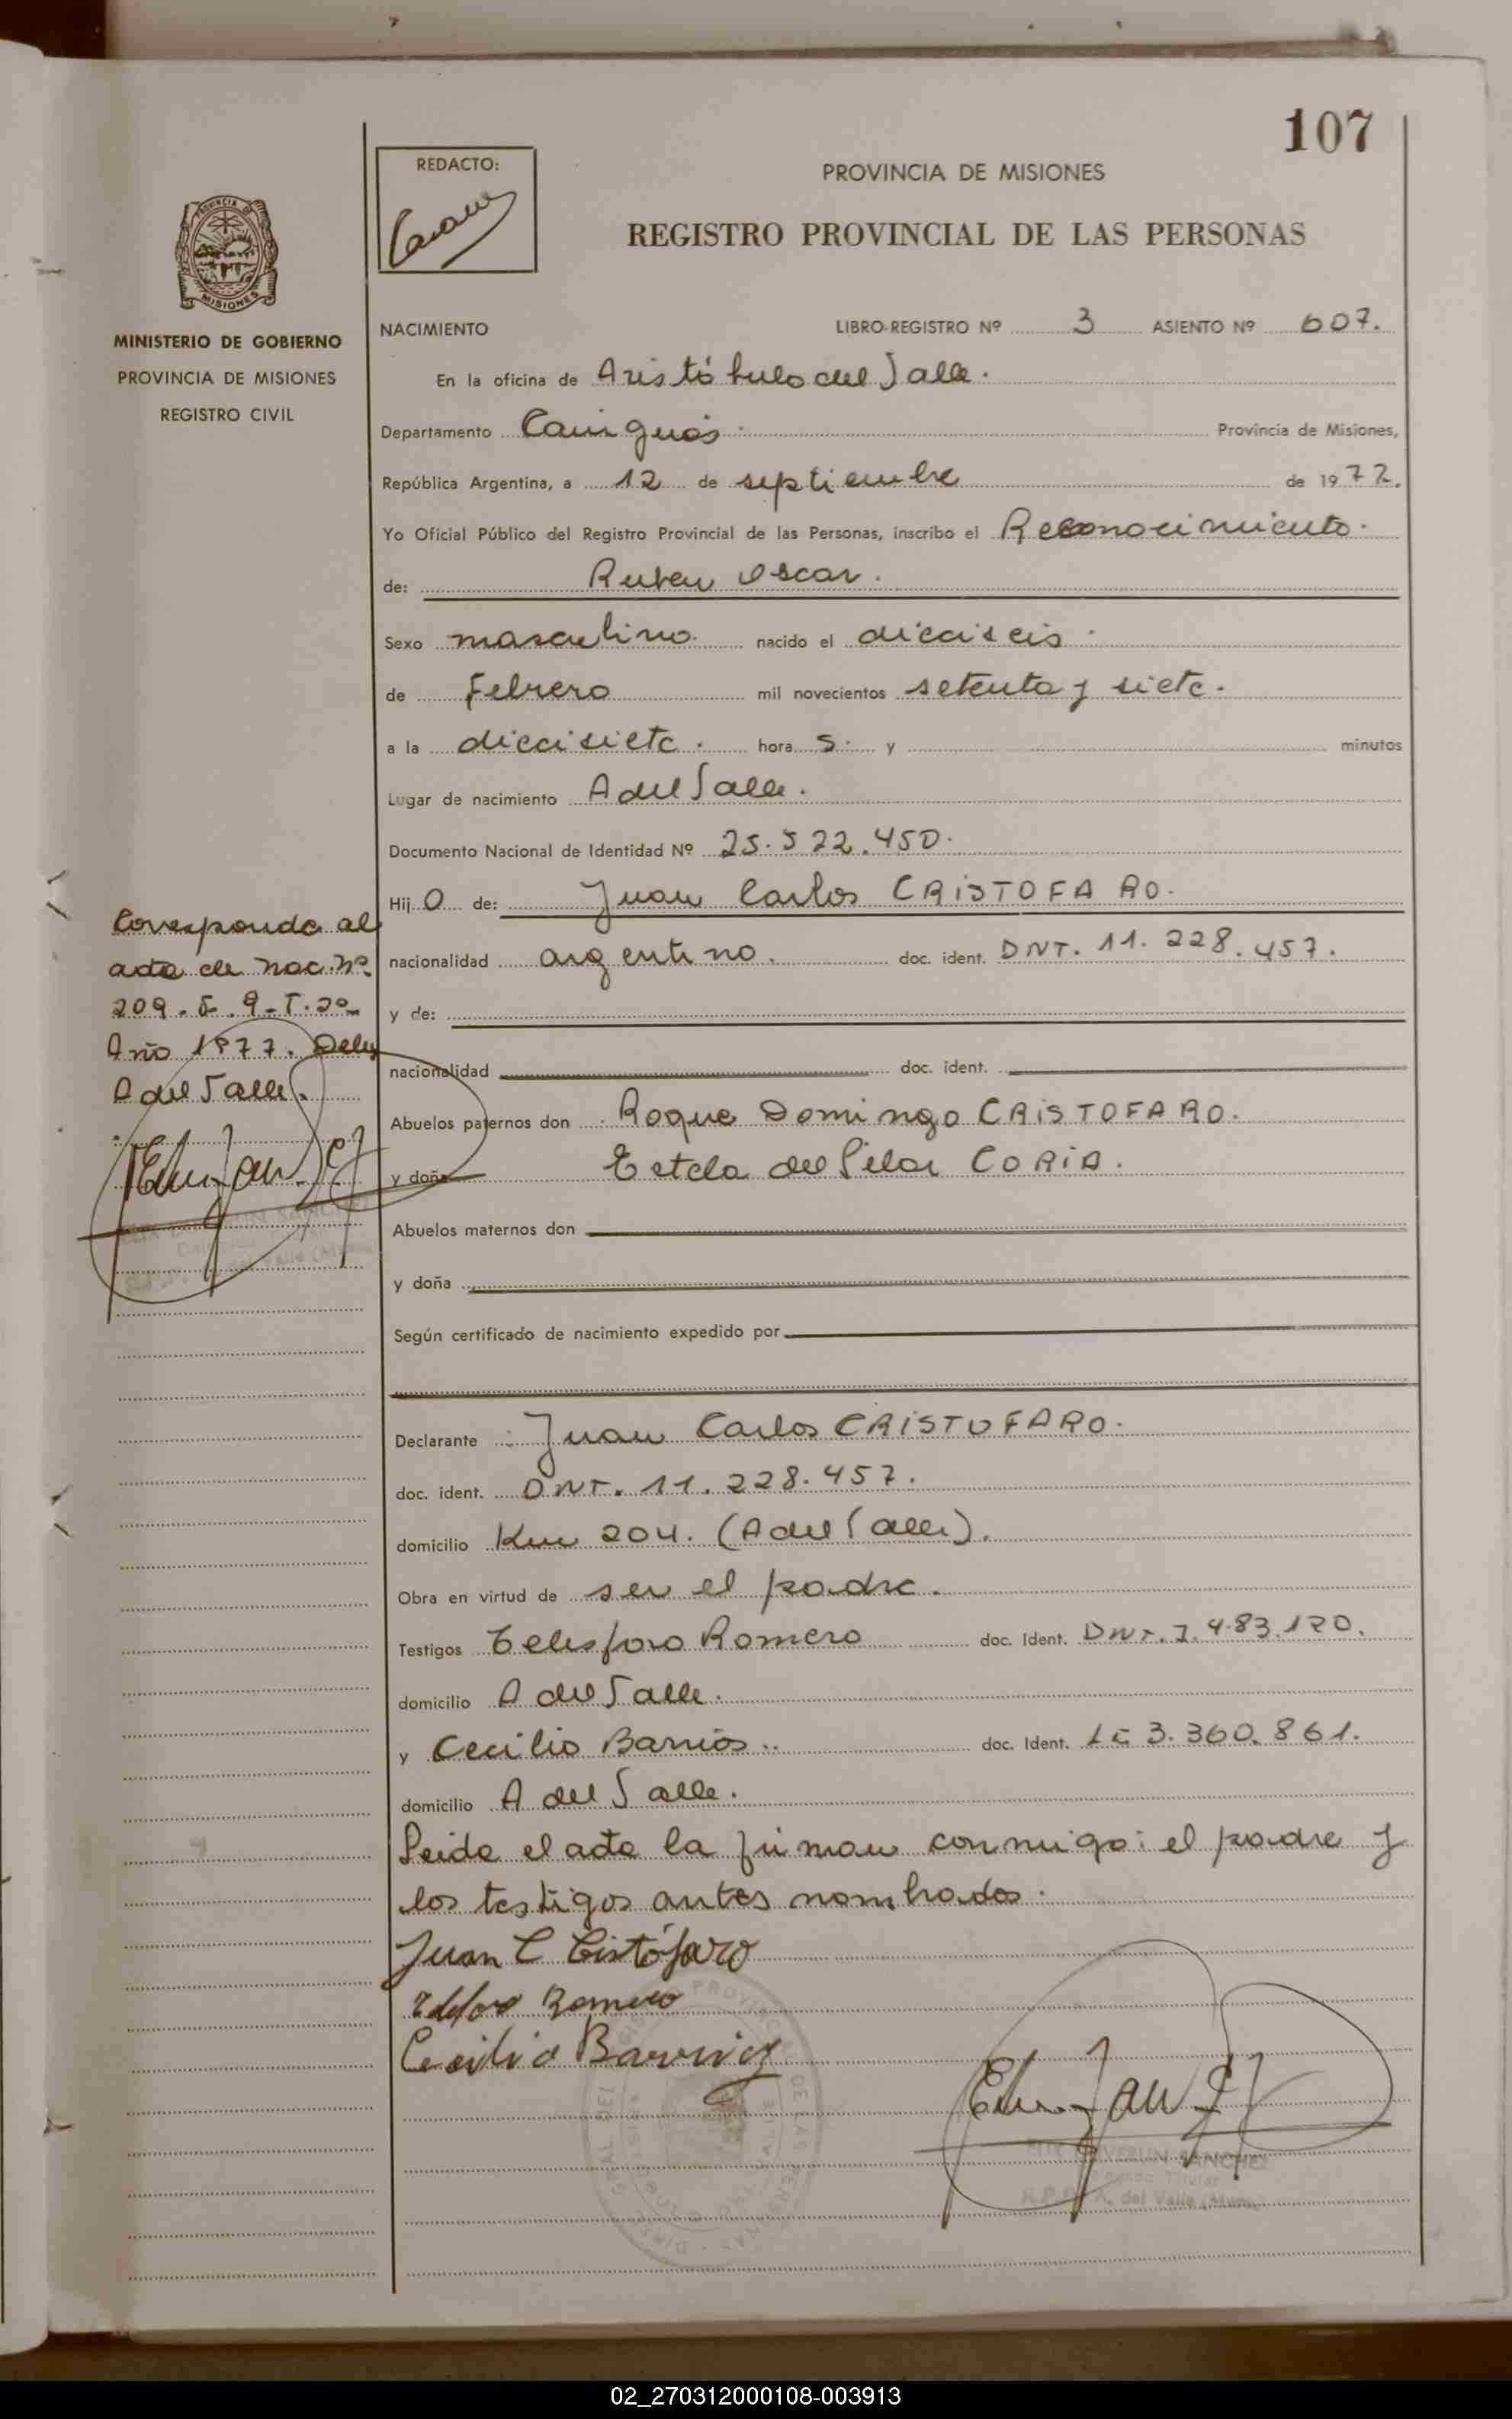 107
REDACTO:
PROVINCIA DE MISIONES
REGISTRO PROVINCIAL DE LAS PERSONAS
PROVINCIA DE
MISIONES
MINISTERIO DE GOBIERNO
PROVINCIA DE MISIONES
REGISTRO CIVIL
NACIMIENTO LIBRO-REGISTRO Nº 3 ASIENTO Nº 607.
En la oficina de Aristóbulo del Valle.
Departamento Cainguás Provincia de Misiones,
República Argentina, a 12 de septiembre de 1977.
Yo Oficial Público del Registro Provincial de las Personas, inscribo el Reconocimiento.
de: Ruben Oscar.
Sexo masculino. nacido el dieciseis
de Febrero mil novecientos setenta y siete.
a la diecisiete. hora s. y minutos
Lugar de nacimiento A del Valle.
Documento Nacional de Identidad Nº 25.522.450.
Hij o de: Juan Carlos CRISTOFARO.
nacionalidad argentino. doc. ident. DNI. 11.228.457.
y de:
nacionalidad doc. ident.
Abuelos paternos don Roque Domingo CRISTOFARO.
y doña Estela del Pilar CORIA.
Abuelos maternos don
y doña
Según certificado de nacimiento expedido por
Corresponde al
acta de nac. nº
209. F. 9-T. 2º
Año 1977. Deleg
A del Valle.
Declarante Juan Carlos CRISTOFARO.
doc. ident. DNI. 11.228.457.
domicilio Km 204. (A del Valle).
Obra en virtud de ser el padre.
Testigos Telesforo Romero doc. Ident. DNI. 7.483.120.
domicilio A del Valle.
y Cecilio Barrios.. doc. Ident. LE 3.360.861.
domicilio A del Valle.
Leida el acta la firman conmigo: el padre y
los testigos antes nombrados.
Juan C Cristófaro
Telesforo Romero
Cecilio Barrios
SANCHEZ
Titular
A. del Valle
02_270312000108-003913